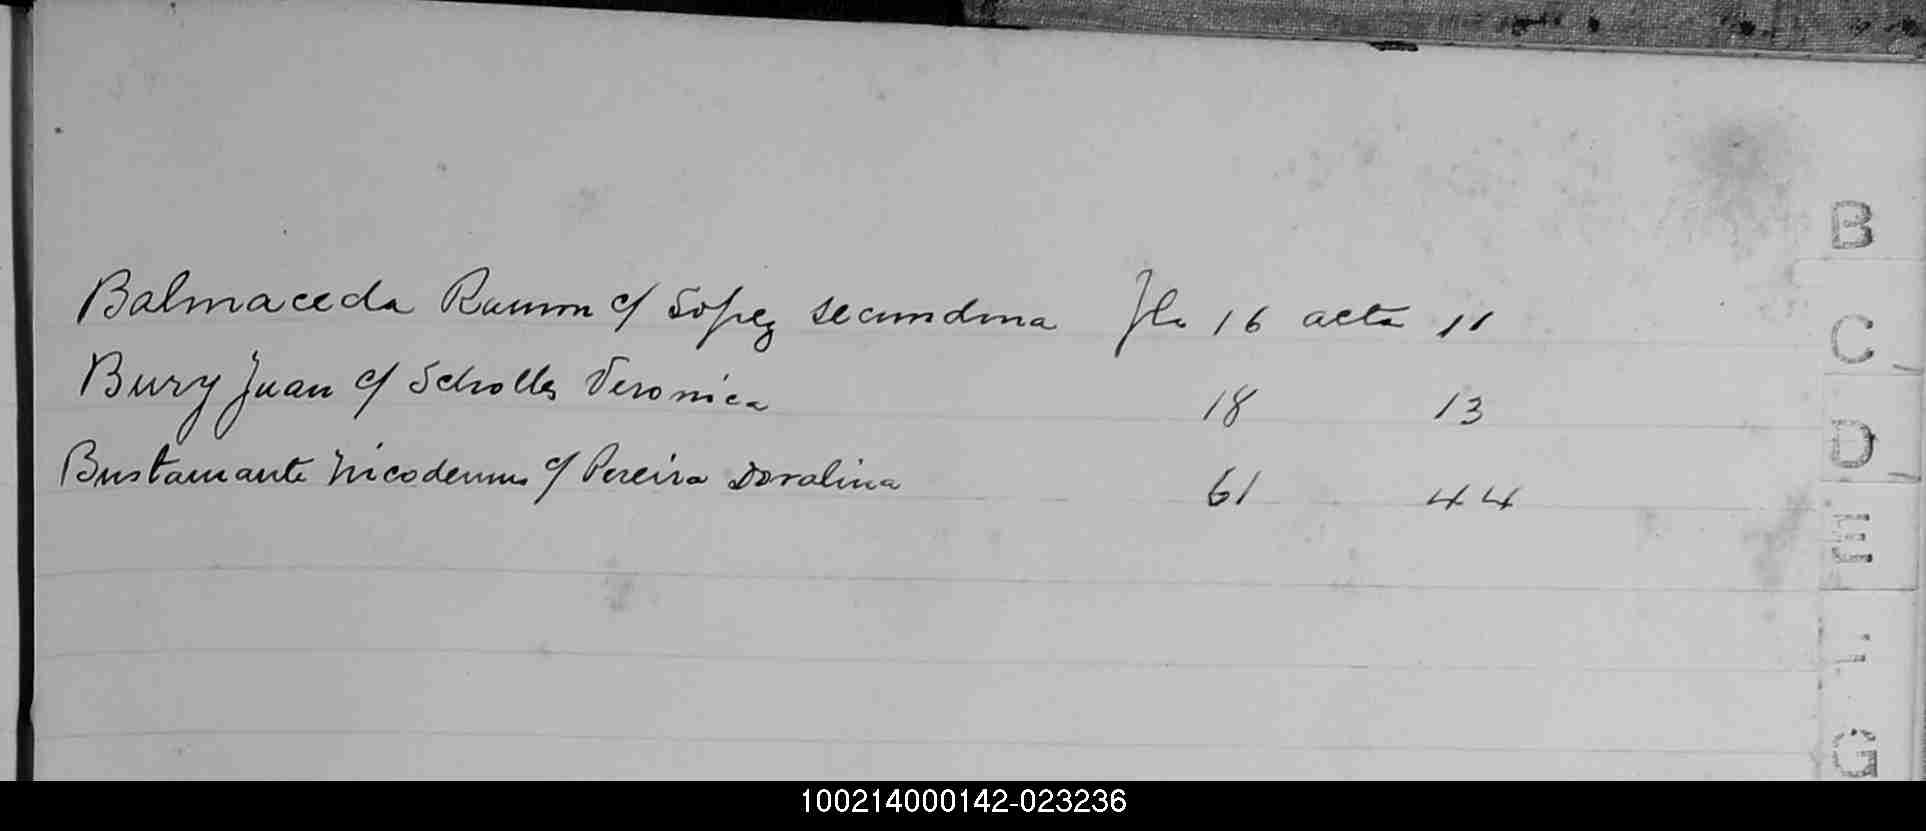 B
Balmaceda Ramon c/ Lopez Secundina flo 16 acta 11
C
Bury Juan c/ Scholles Veronica 18 13
D
Bustamante Nicodemus c/ Pereira Doralina 61 44
E
G
100214000142-023236